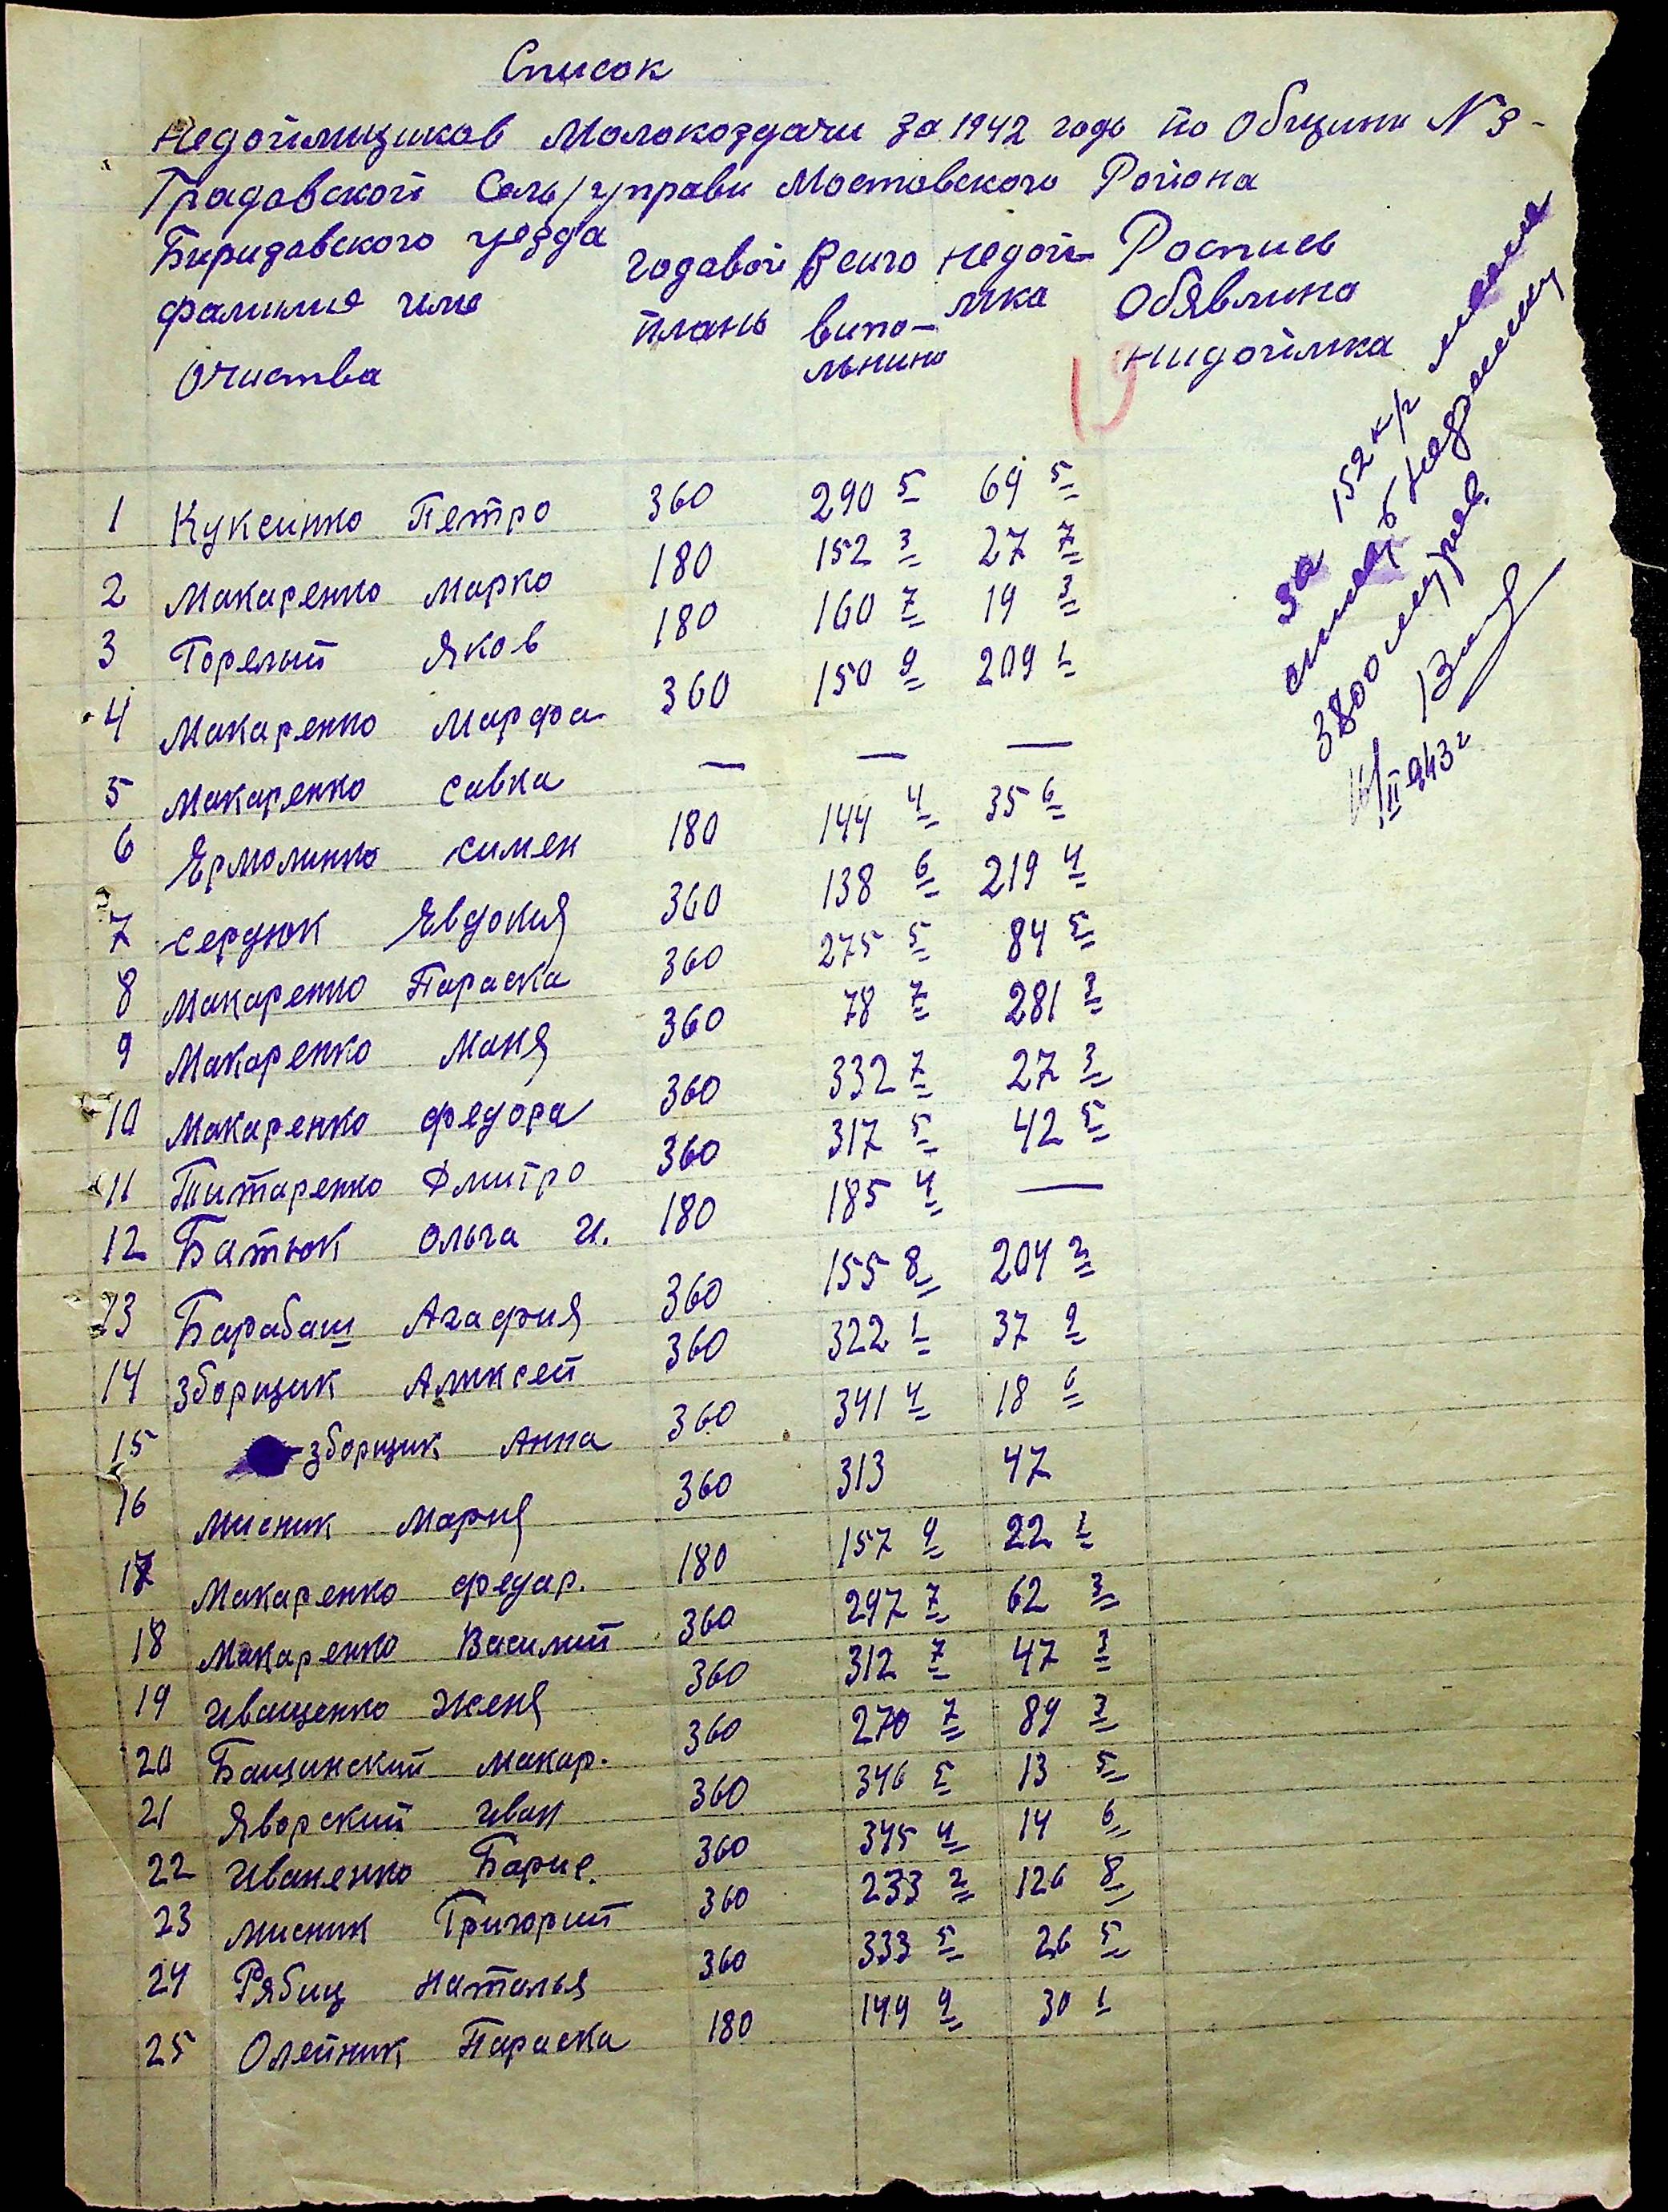 Список
Недоймщиков Молокоздачи за 1942 годь по Общини N 3-
Градовской Сель/управи Мостовского Района
Биридовского уезда
фамилия име Очиства
Годовой плань
Всиго випо-льнино
Недой-мка
Роспись Обявлино нидоймка
19
1 Куксинко Петро 360 290 5 69 5
2 Макаренко Марко 180 152 3 27 7
3 Горелый Яков 180 160 7 19 3
4 Макаренко Марфа. 360 150 9 209 1
5 Макаренко Савка — — —
6 Ярмолинко Симен 180 144 4 35 6
7 Сердюк Явдокия 360 138 6 219 4
8 Макаренко Параска 360 275 5 84 5
9 Макаренко Маня 360 78 7 281 3
10 Макаренко Федора 360 332 7 27 3
11 Титаренко Дмитро 360 317 5 42 5
12 Батюк Ольга И. 180 185 4 —
13 Барабаш Агафия 360 155 8 204 2
14 Зборщик Аликсей 360 322 1 37 9
15 Зборщик Анна 360 341 4 18 6
16 Мисник Мария 360 313 47
17 Макаренко Федор. 180 157 9 22 1
18 Макаренко Василий 360 297 7 62 3
19 Иващенко Женя 360 312 7 47 3
20 Бащинский Макар. 360 270 7 89 3
21 Яворский Иван 360 346 5 13 5
22 Иваненко Борис. 360 345 4 14 6
23 Мисник Григорий 360 233 2 126 8
24 Рябиц Наталья 360 333 5 26 5
25 Олейник Параска 180 149 9 30 1
За 152 к/г масла
б недоимку
3800
II 943 г